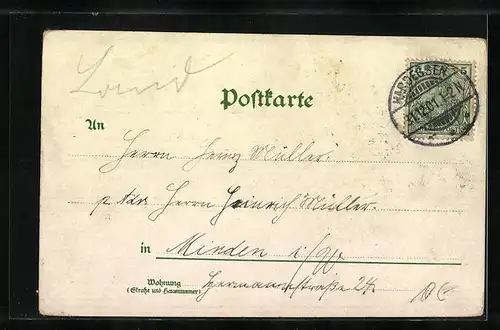 Postkarte
An
Herrn Heinz Müller.
p. Adr. Herrn Heinrich Müller.
in Minden i/W.
Wohnung
(Straße und Hausnummer)
Hermannstraße 24